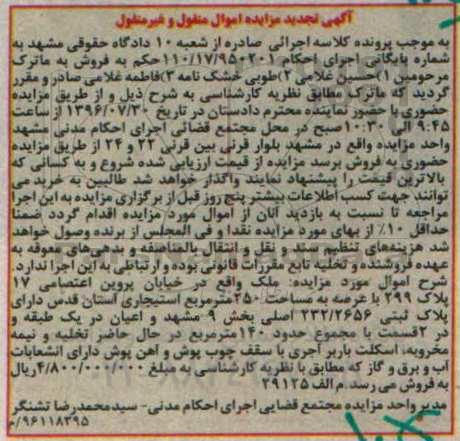 آگهی تجدید مزایده اموال منقول و غیرمنقول
به موجب پرونده کلاسه اجرائی صادره از شعبه ۱۰ دادگاه حقوقی مشهد به
شماره بایگانی اجرای احکام ۱۱۰/۱۷/۹۵۰۲۰۱حکم به فروش به ماترک
مرحومین ۱)حسین غلامی ۲)طوبی خشک نامه ۳)فاطمه غلامی صادر و مقرر
گردید که ماترک مطابق نظریه کارشناسی به شرح ذیل و از طریق مزایده
حضوری با حضور نماینده محترم دادستان در تاریخ ۱۳۹۶/۰۷/۳۰ از ساعت
۹:۴۵ الی ۱۰:۳۰صبح در محل مجتمع قضائی اجرای احکام مدنی مشهد
واحد مزایده واقع در مشهد بلوار قرنی بین قرنی ۲۲ و ۲۴ از طریق مزایده
حضوری به فروش برسد مزایده از قیمت ارزیابی شده شروع و به کسانی که
بالاترین قیمت را پیشنهاد نمایند واگذار خواهد شد طالبین به خرید می
توانند جهت کسب اطلاعات بیشتر پنج روز قبل از برگزاری مزایده به این اجرا
مراجعه تا نسبت به بازدید آنان از اموال مورد مزایده اقدام گردد ضمنا
حداقل ۱۰٪ از بهای مورد مزایده نقدا و فی المجلس از برنده وصول خواهد
شد هزینه‌های تنظیم سند و نقل و انتقال بالمناصفه و بدهی‌های معوقه به
عهده فروشنده و تخلیه تابع مقررات قانونی بوده و ارتباطی به این اجرا ندارد.
شرح اموال مورد مزایده: ملک واقع در خیابان پروین اعتصامی ۱۷
پلاک ۲۹۹ با عرصه به مساحت ۲۵۰مترمربع استیجاری آستان قدس دارای
پلاک ثبتی ۲۳۲/۲۶۵۶ اصلی بخش ۹ مشهد و اعیان در یک طبقه و
در ۲قسمت با مجموع حدود ۱۴۰مترمربع در حال حاضر تخلیه و نیمه
مخروبه، اسکلت باربر آجری با سقف چوب پوش و آهن پوش دارای انشعابات
آب و برق و گاز که مطابق با نظریه کارشناسی به مبلغ ۴/۸۰۰/۰۰۰/۰۰۰ریال
به فروش می رسد.م الف ۲۹۱۲۵
مدیر واحد مزایده مجتمع قضایی اجرای احکام مدنی- سیدمحمدرضا تشنگر
۹۶۱۱۸۳۹۵/م